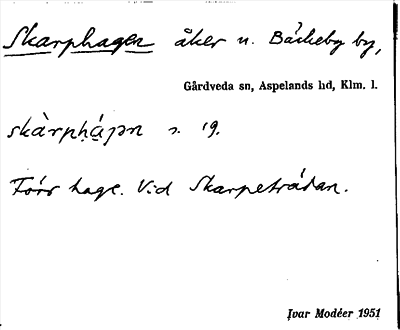 Skarphagen åker n. Bäckeby by,
Gårdveda sn, Aspelands hd, Klm. l.
skàrpḥá̱gən s. 19.
Förr hage. Vid Skarpetrådan.
Ivar Modéer 1951